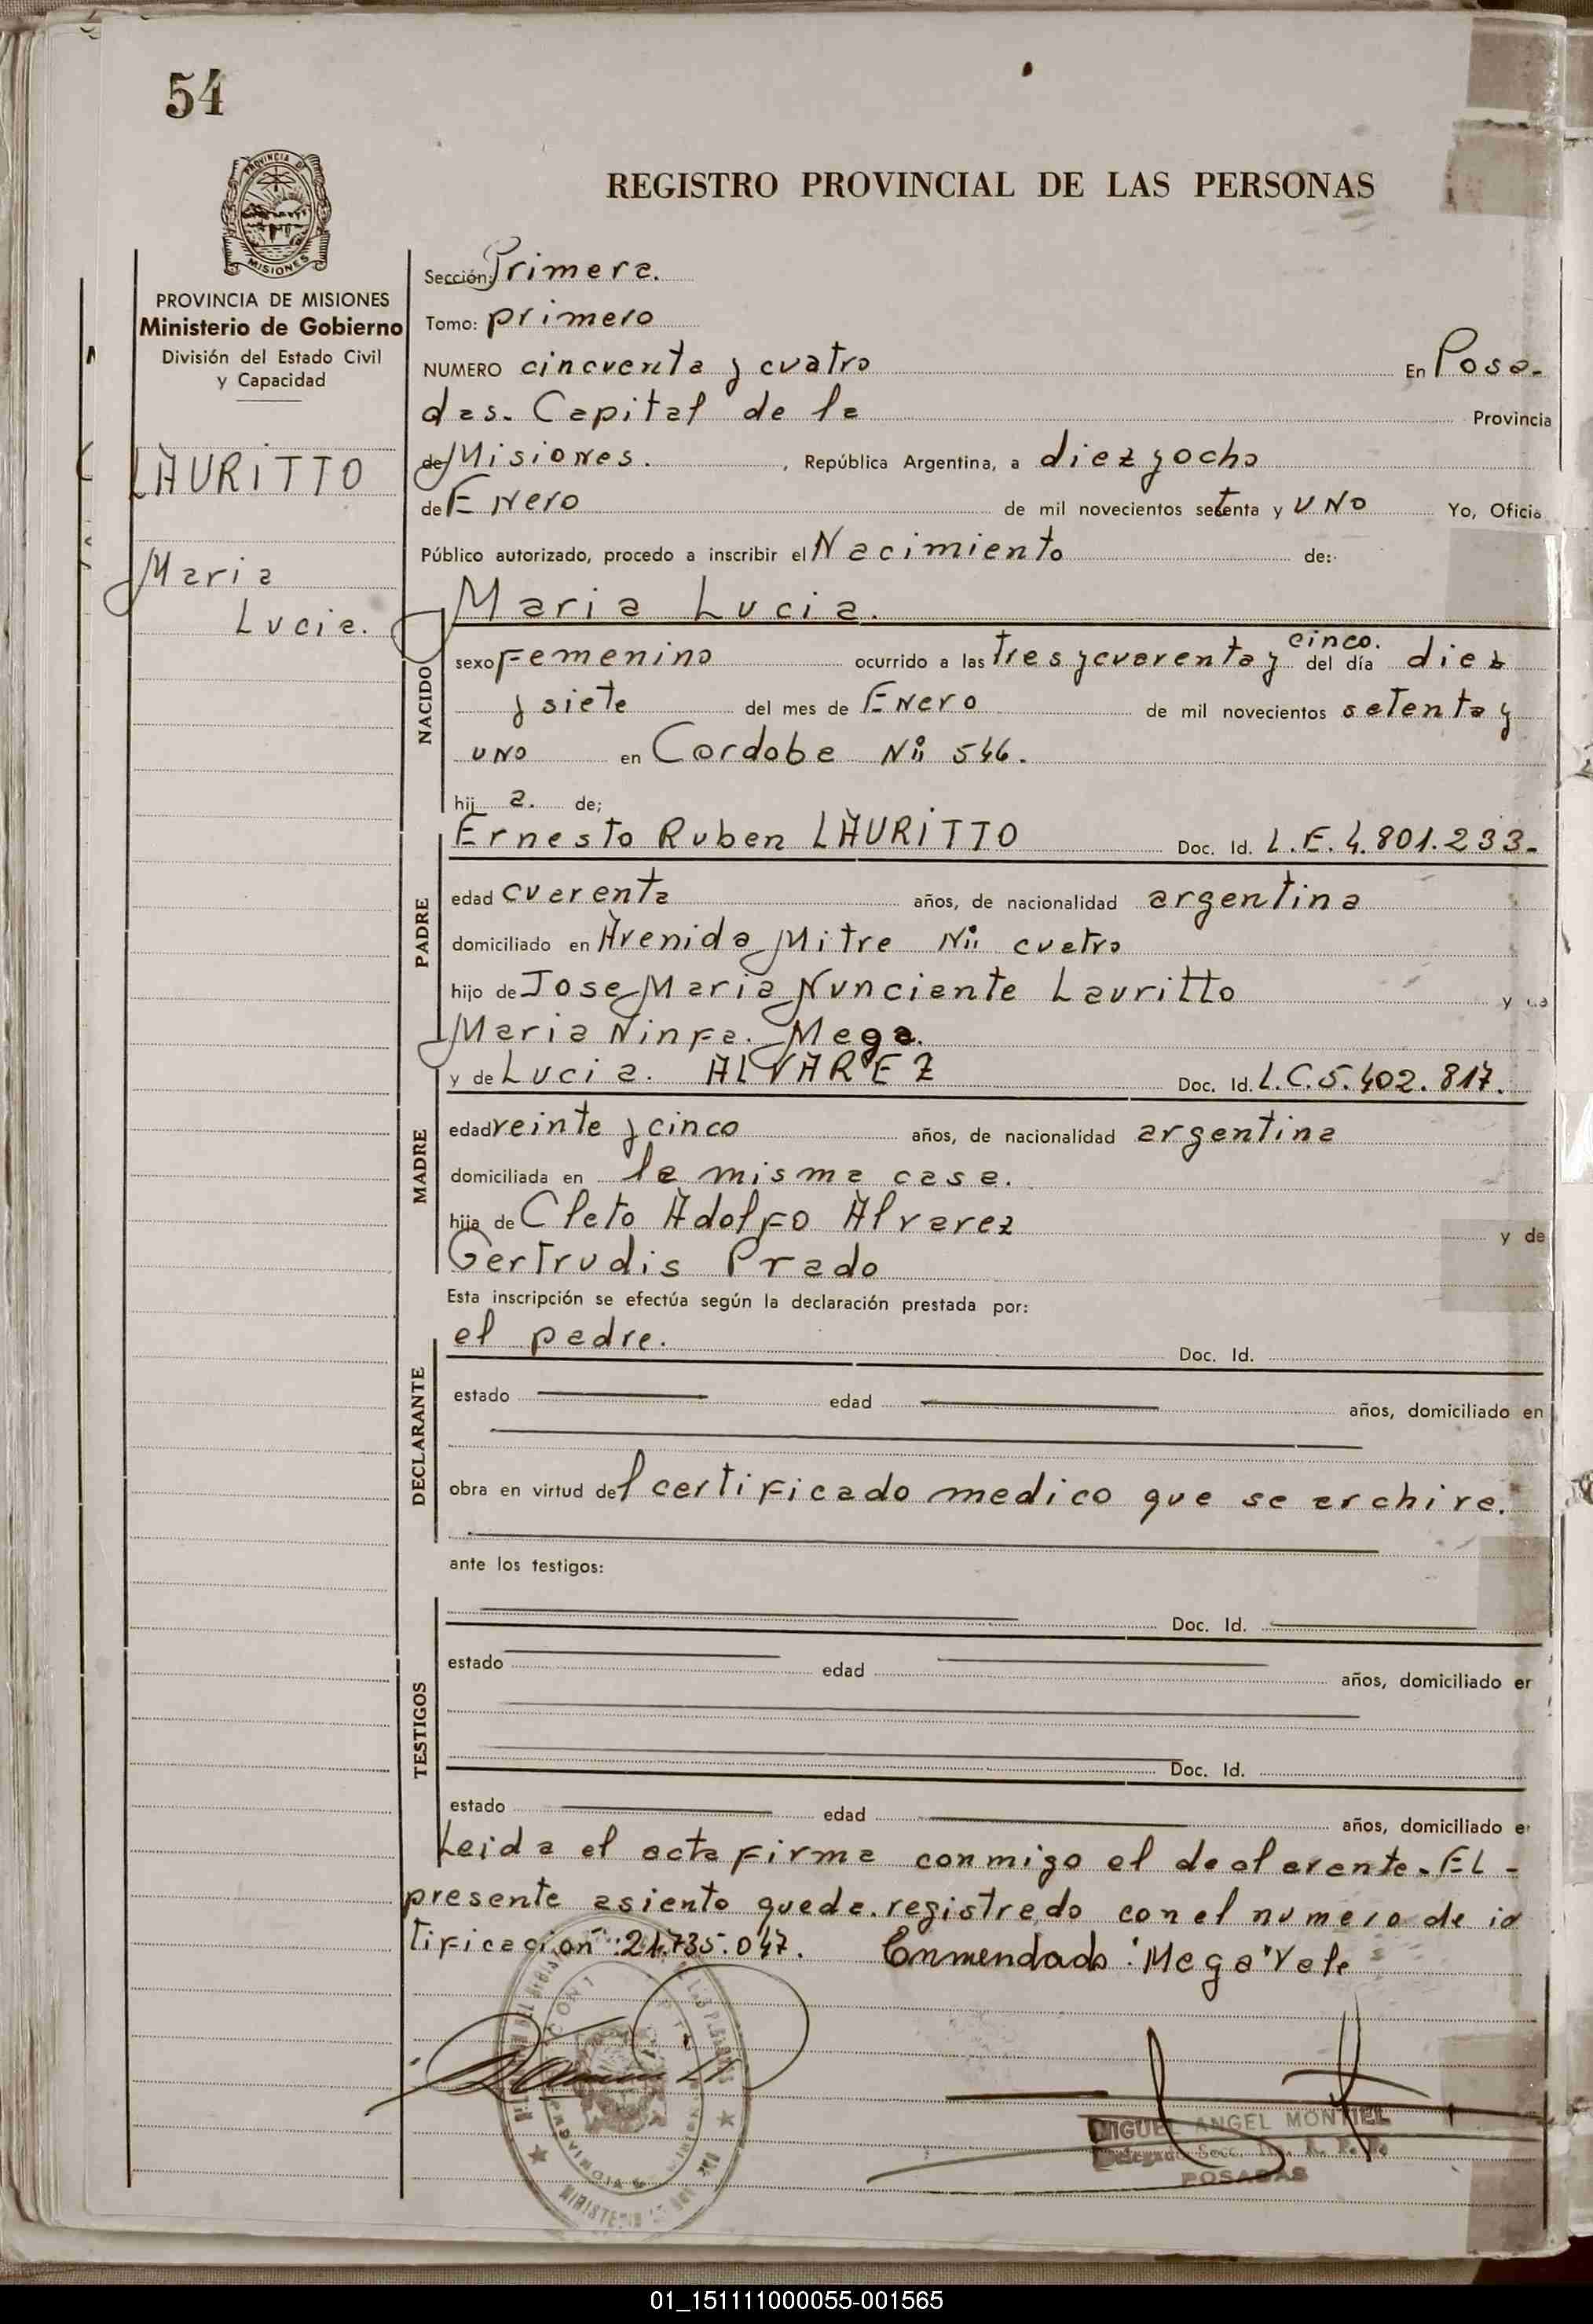 54
PROVINCIA DE
MISIONES
REGISTRO PROVINCIAL DE LAS PERSONAS
PROVINCIA DE MISIONES
Ministerio de Gobierno
División del Estado Civil
y Capacidad
LAURITTO
Maria
Lucia.
Sección: Primera.
Tomo: primero
NUMERO cincuenta y cuatro En Posa-
das. Capital de la Provincia
de Misiones. , República Argentina, a diez y ocho
de Enero de mil novecientos setenta y uno Yo, Oficia
Público autorizado, procedo a inscribir el Nacimiento de:
Maria Lucia.
NACIDO
cinco.
sexo Femenino ocurrido a las tres y cuarenta y del día diez
y siete del mes de Enero de mil novecientos setenta y
uno en Cordoba Nº 546.
hij a. de;
PADRE
Ernesto Ruben LAURITTO Doc. Id. L.E. 4.801.233-
edad cuarenta años, de nacionalidad argentina
domiciliado en Avenida Mitre Nº cuatro
hijo de Jose Maria Nunciante Lauritto y
Maria Ninfa. Mega.
MADRE
y de Lucia. ALVAREZ Doc. Id. L.C. 5.402.817.
edad veinte y cinco años, de nacionalidad argentina
domiciliada en la misma casa.
hija de Cleto Adolfo Alvarez y de
Gertrudis Prado
Esta inscripción se efectúa según la declaración prestada por:
DECLARANTE
el padre. Doc. Id.
estado edad años, domiciliado en
obra en virtud del certificado medico que se archiva.
ante los testigos:
TESTIGOS
Doc. Id.
estado edad años, domiciliado er
Doc. Id.
estado edad años, domiciliado e
Leida el acta firma conmigo el declarante. EL -
presente asiento queda registrado con el numero de id
tificacion: 21.735.047. Enmendado "Mega" Vale
MIGUEL ANGEL MONTIEL
Delegado Secc. R. P. P.
POSADAS
01_151111000055-001565